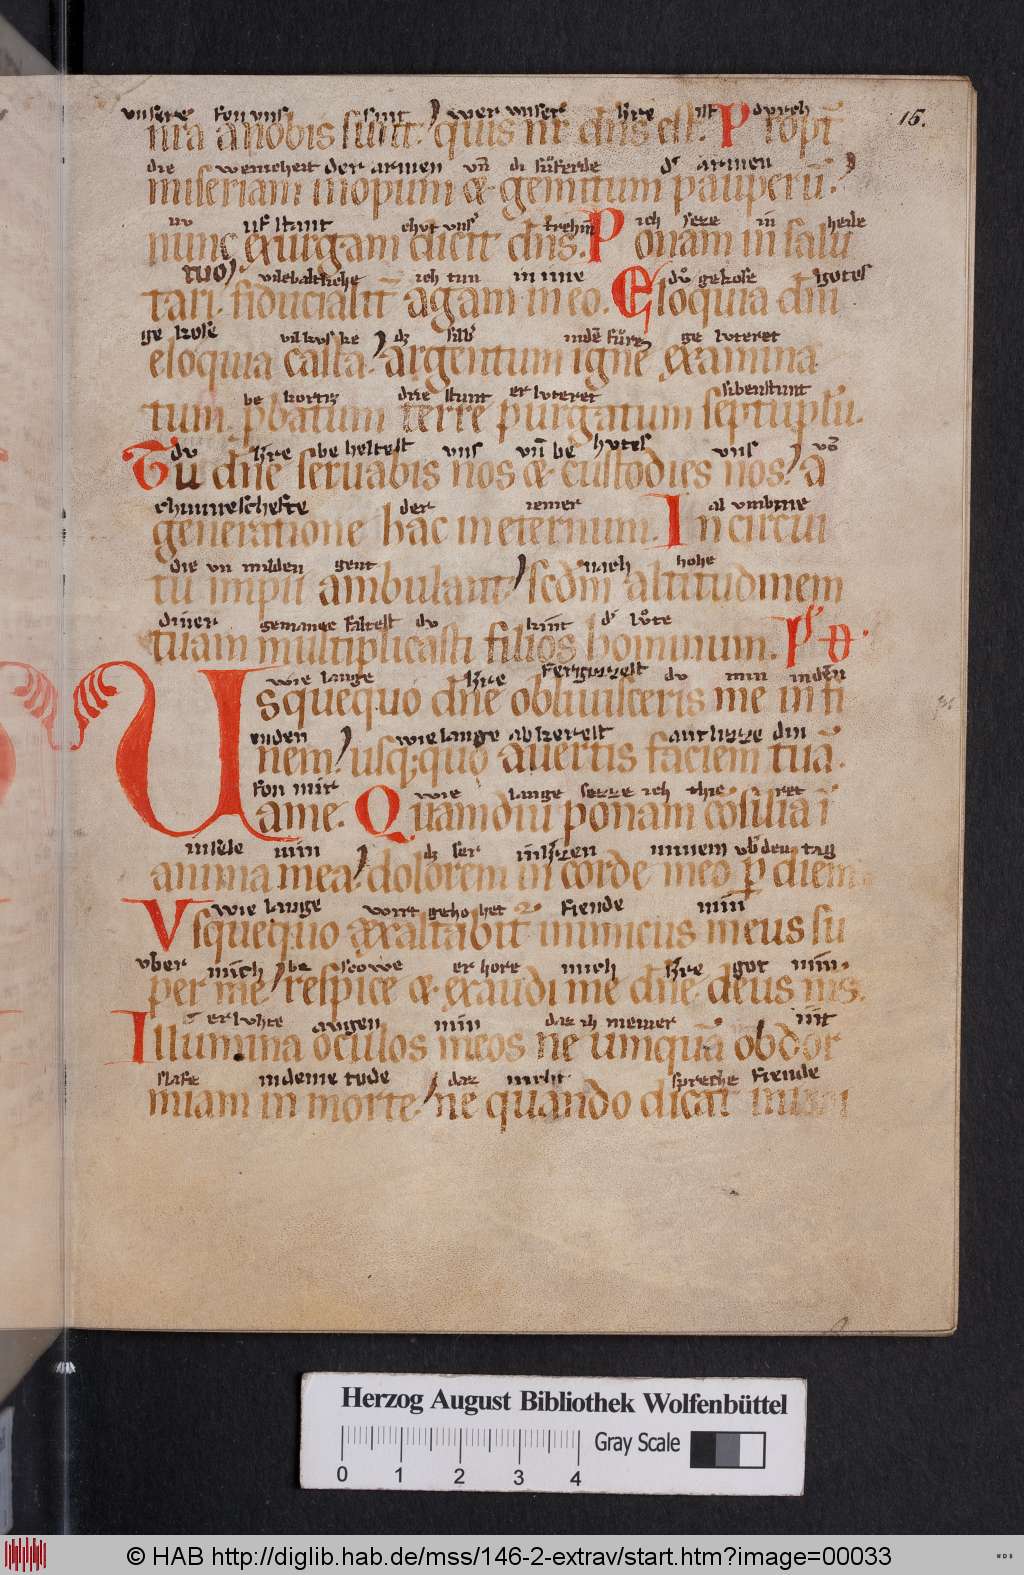 vnsere fon vns sint wer vnser h̄re ist durch
15.
nr̄a a nobis sunt. quis nr̄ dn̄s est. Propt̄
die wenicheit der armen vn̄ di armen
miseriam inopum & gemitum pauperū.
nv uf stant vns ich seze in heile
nunc exurgam dicit dn̄s. Ponam in salu
ich tun in ime gekose gotes
tari. fiducialit̄ agam in eo. Eloquia dn̄i
ge kose silb' ge luteret
eloquia casta. argentum igne examina
drie stunt er luteret sibenstunt
tum. ꝓbatum terre purgatum septuplū.
du h̄re be heltest vns vn̄ be hutes vns
Tu dn̄e seruabis nos & custodies nos. a
der iemer al vmbme
generatione hac in eternum. In circui
die vn milden gent nach hohe
tu impii ambulant. scd̄m altitudinem
diner kint
tuam multiplicasti filios hominum. Ps D.
wie lange h̄re du min
Usquequo dn̄e obliuisceris me in fi
enden wie lange abkerest antlizze din
nem. usq; quo auertis faciem tuā.
fon mir wie lange sezze ich
a me. Quamdiu ponam cōsilia ī
in sele min ser minem tag
anima mea. dolorem in corde meo p̱ diem
wie lange wirt gehohet fiende min
Usquequo exaltabit̄ inimicus meus su
vber mich be scowe er hore mich h̄re got min
per me. respice & exaudi me dn̄e deus ms̄.
er luhte augen min daz ih niemer int
Illumina oculos meos ne umquā obdor
slafe in deme tode daz niht spreche fiende
miam in morte. ne quando dicat inimi
Herzog August Bibliothek Wolfenbüttel
Gray Scale
0 1 2 3 4
© HAB http://diglib.hab.de/mss/146-2-extrav/start.htm?image=00033